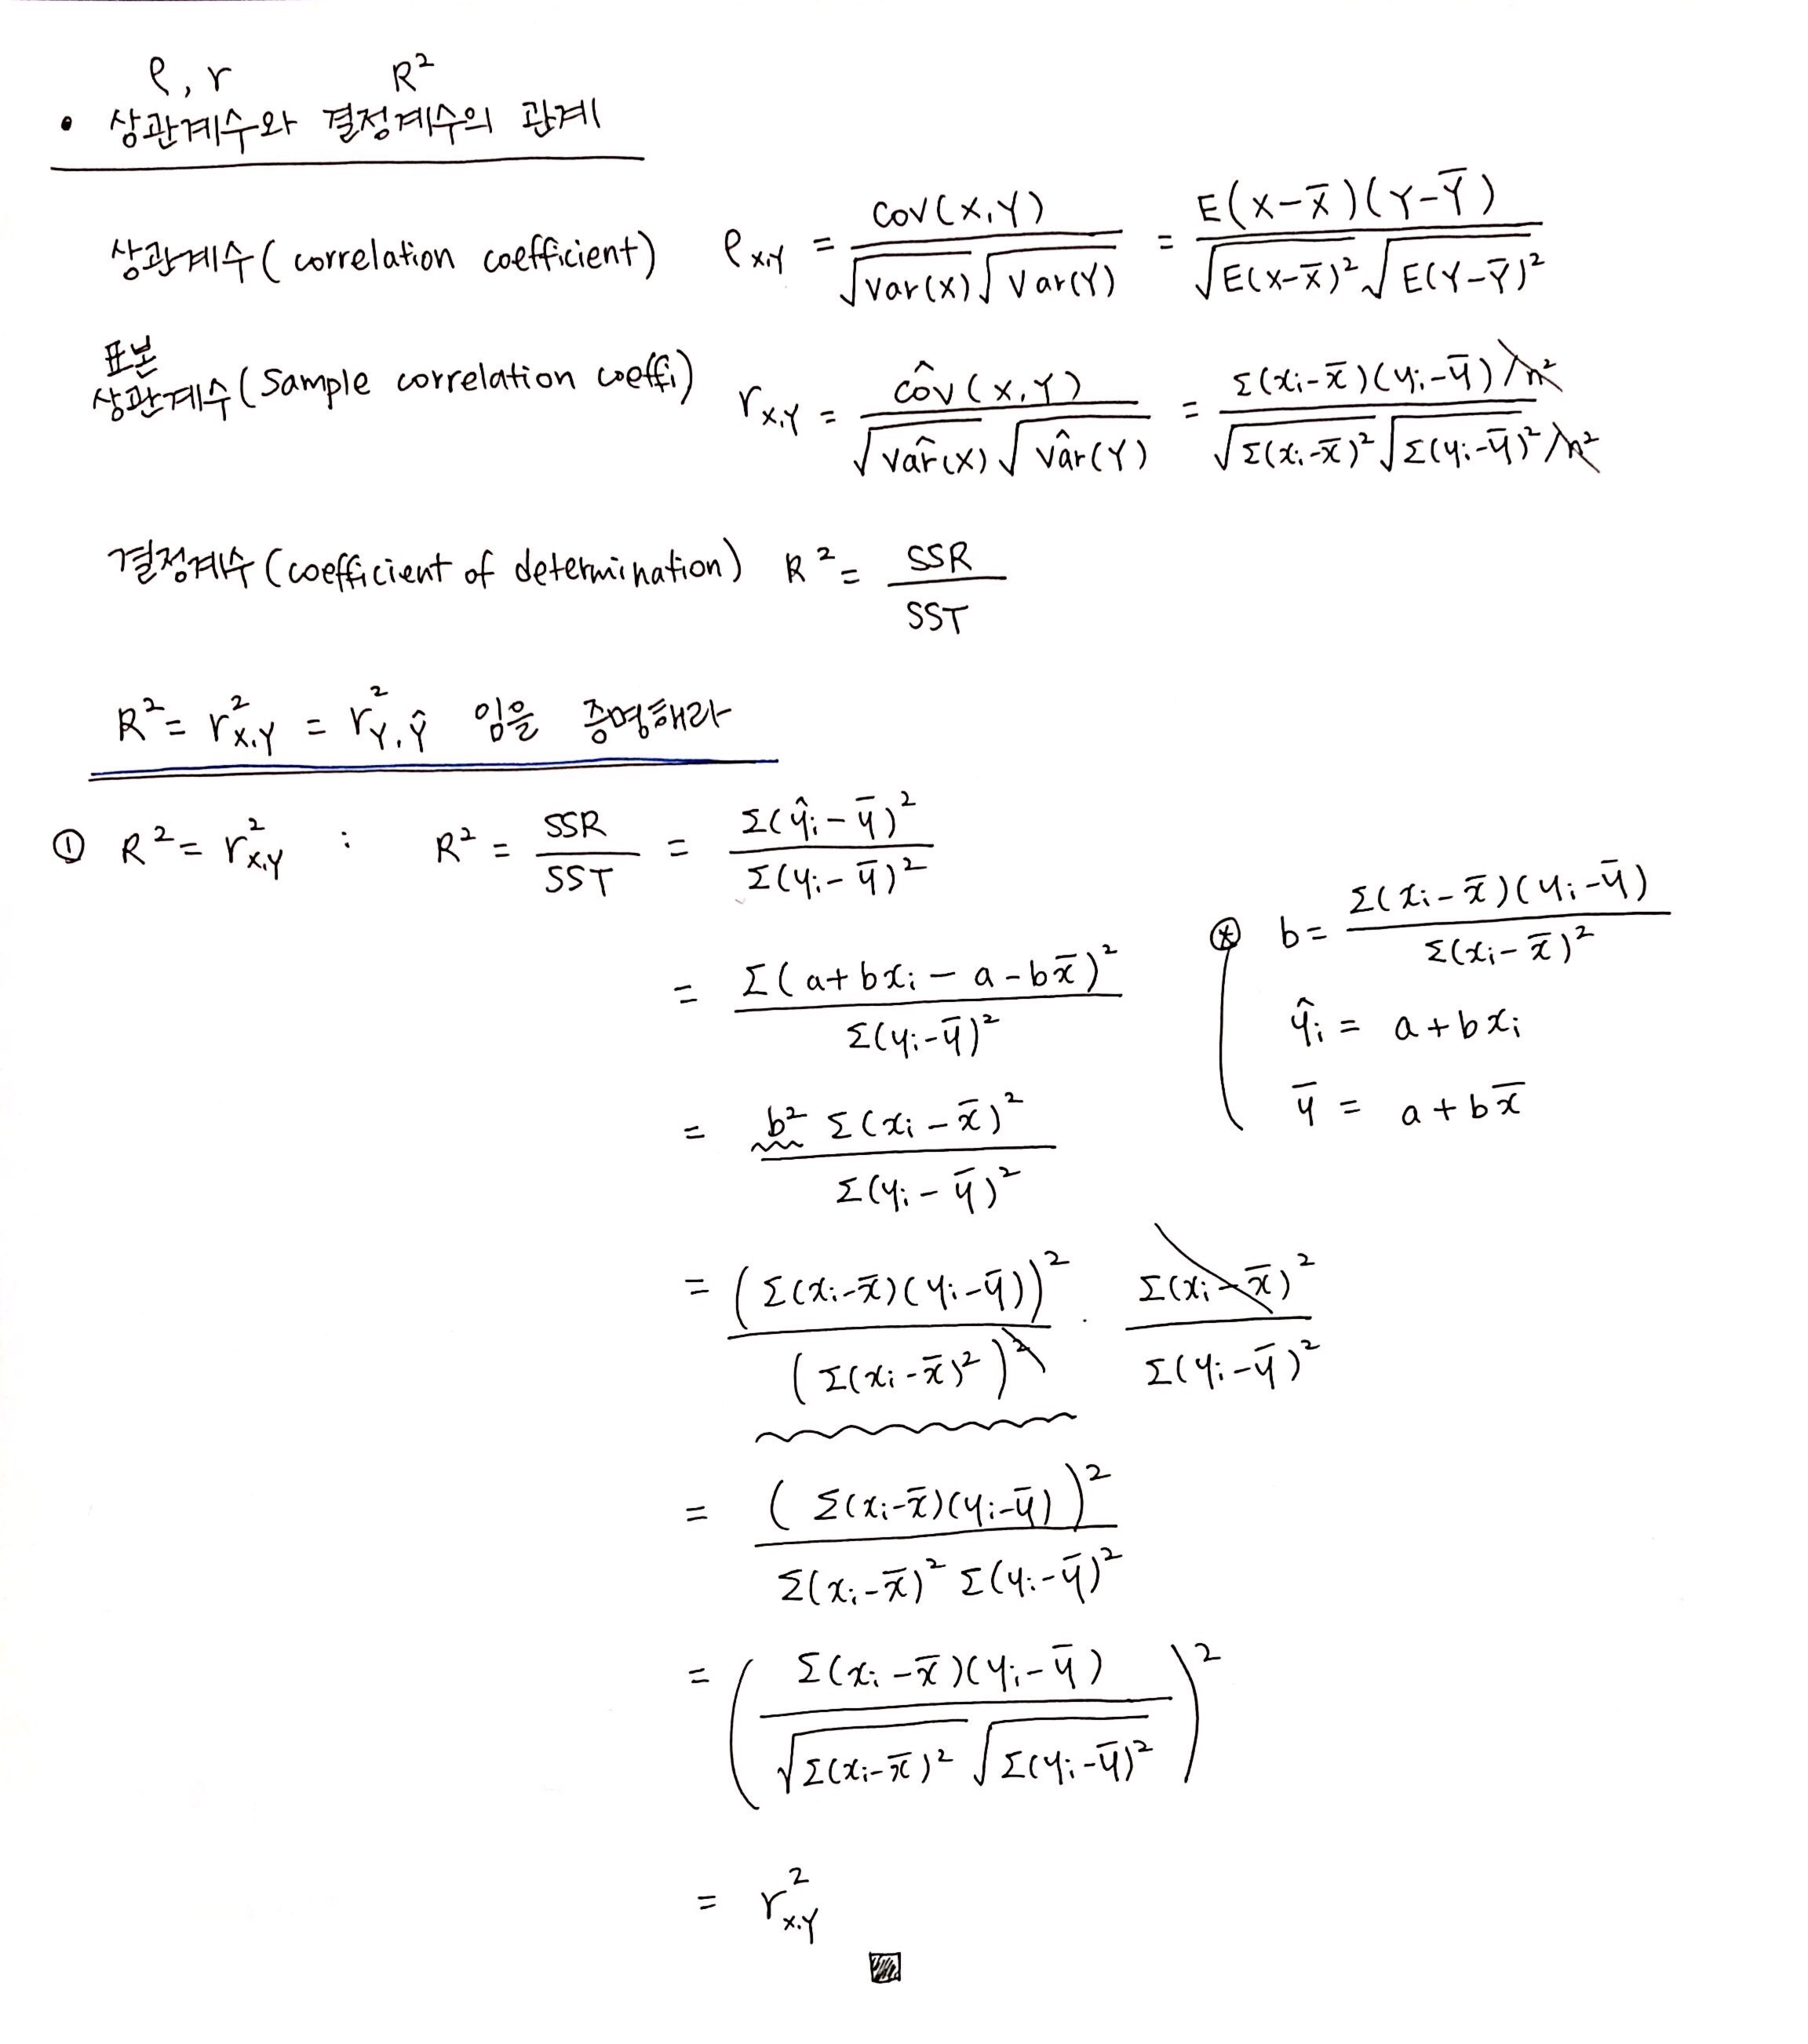 ρ, r R²
• 상관계수와 결정계수의 관계
상관계수 ( correlation coefficient) ρ_{X,Y} = Cov(X,Y) / √Var(X) √Var(Y) = E(X-X̄)(Y-Ȳ) / √E(X-X̄)² √E(Y-Ȳ)²
표본
상관계수 (Sample correlation coeffi) r_{X,Y} = Côv(X,Y) / √Vâr(X) √Vâr(Y) = Σ(xᵢ-x̄)(yᵢ-ȳ) /n² / √Σ(xᵢ-x̄)² √Σ(yᵢ-ȳ)² /n²
결정계수 (coefficient of determination) R² = SSR / SST
R² = r²_{X,Y} = r²_{Y,Ŷ} 임을 증명해라
① R² = r²_{X,Y} : R² = SSR / SST = Σ(ŷᵢ-ȳ)² / Σ(yᵢ-ȳ)²
⊛ b = Σ(xᵢ-x̄)(yᵢ-ȳ) / Σ(xᵢ-x̄)²
= Σ(a+bxᵢ-a-bx̄)² / Σ(yᵢ-ȳ)²
ŷᵢ = a+bxᵢ
ȳ = a+bx̄
= b² Σ(xᵢ-x̄)² / Σ(yᵢ-ȳ)²
= (Σ(xᵢ-x̄)(yᵢ-ȳ))² / (Σ(xᵢ-x̄)²)² · Σ(xᵢ-x̄)² / Σ(yᵢ-ȳ)²
= (Σ(xᵢ-x̄)(yᵢ-ȳ))² / Σ(xᵢ-x̄)² Σ(yᵢ-ȳ)²
= (Σ(xᵢ-x̄)(yᵢ-ȳ) / √Σ(xᵢ-x̄)² √Σ(yᵢ-ȳ)²)²
= r²_{X,Y}